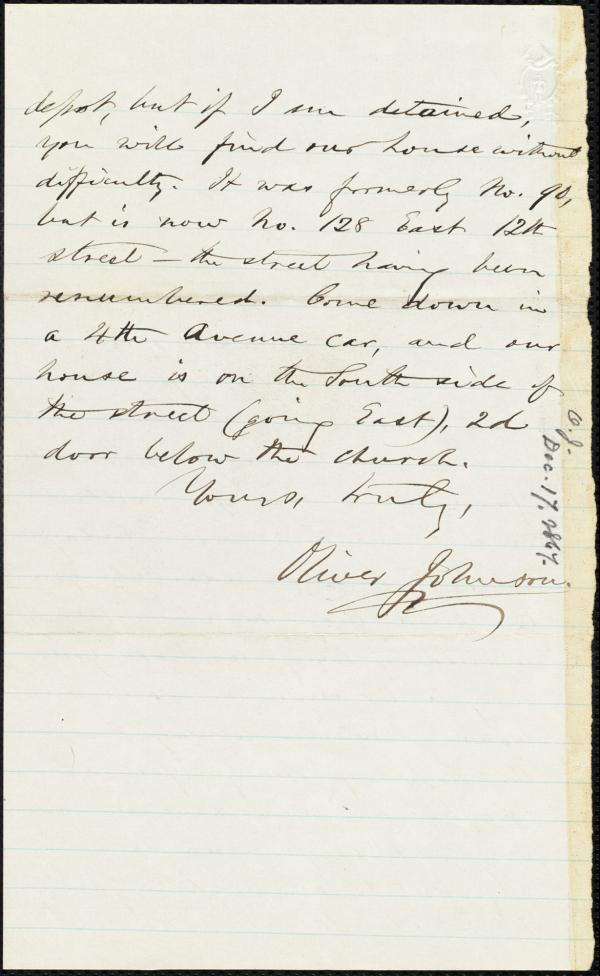 depot, but if I am detained,
you will find our house without
difficulty. It was formerly No. 90,
but is now No. 128 East 12th
street — the street having been
renumbered. Come down in
a 4th Avenue car, and our
house is on the South side of
the street (going East), 2d
door below the church.
Yours, truly,
Oliver Johnson.
O. J.
Dec. 17, 1867.